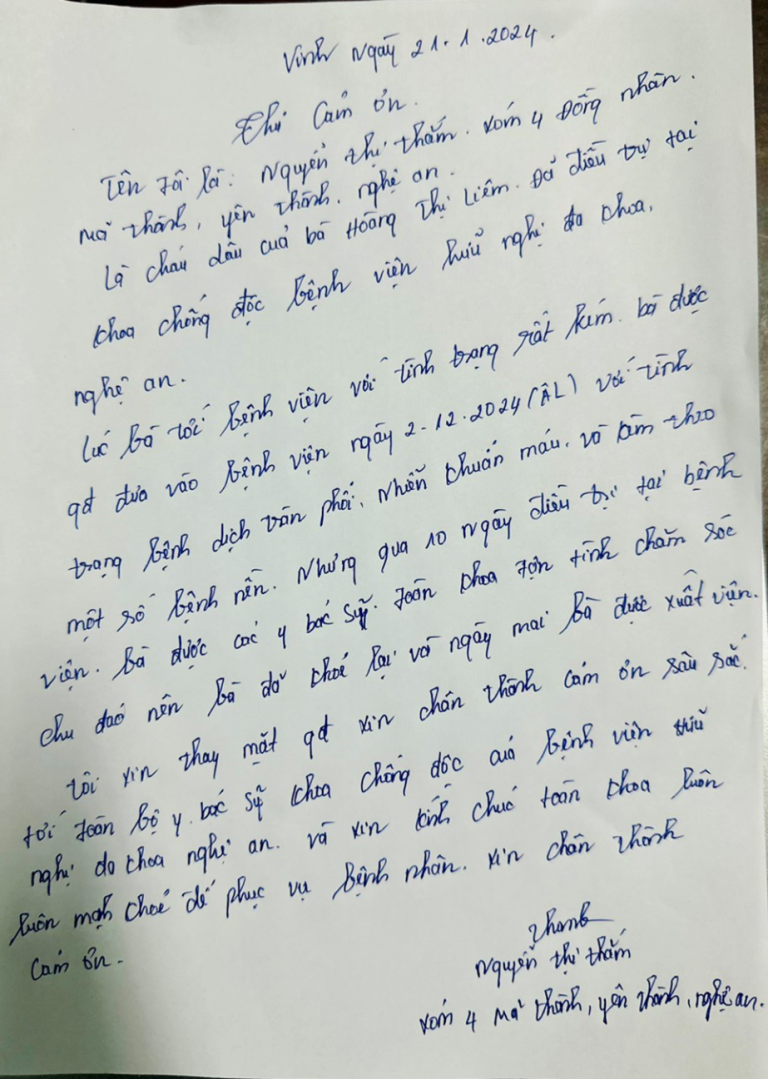 Vinh Ngày 21.1.2024.
Thư Cảm ơn.
Tên tôi là: Nguyễn thị thắm. Xóm 4 Đồng nhân.
Mã thành, yên thành. nghệ an.
Là cháu dâu của bà Hoàng Thị Liêm. Đã điều trị tại
khoa chống độc bệnh viện hữu nghị đa khoa,
nghệ an.
Lúc bà tới bệnh viện với tình trạng rất kém. bà được
gđ đưa vào bệnh viện ngày 2-12.2024 (ÂL) với tình
trạng bệnh dịch tràn phổi, nhiễn khuẩn máu. và kèm theo
một số bệnh nền. Nhưng qua 10 ngày điều trị tại bệnh
viện. bà được các y bác sỹ. toàn khoa tận tình chăm sóc
chu đáo nên bà đã khoẻ lại và ngày mai bà được xuất viện.
tôi xin thay mặt gđ xin chân thành cảm ơn sâu sắc.
tới toàn bộ y. bác sỹ khoa chống độc của bệnh viện hữu
nghị đa khoa nghệ an. và xin kính chúc toàn khoa luôn
luôn mạnh khoẻ để phục vụ bệnh nhân. xin chân thành
cảm ơn.
Nguyễn thị thắm
xóm 4 mã thành, yên thành, nghệ an.